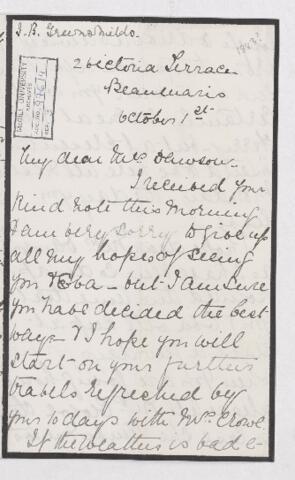 J. B. Greenshields.
1843?
2 Victoria Terrace
Beaumaris
October 1st
My dear Mrs Dawson.
I received your
kind note this morning
I am very sorry to give up
all my hopes of seeing
you & Eva - but I am sure
you have decided the best
way - & I hope you will
start on your further
travels refreshed by
your 10 days with Mrs. Crowe.
If the weather is bad &